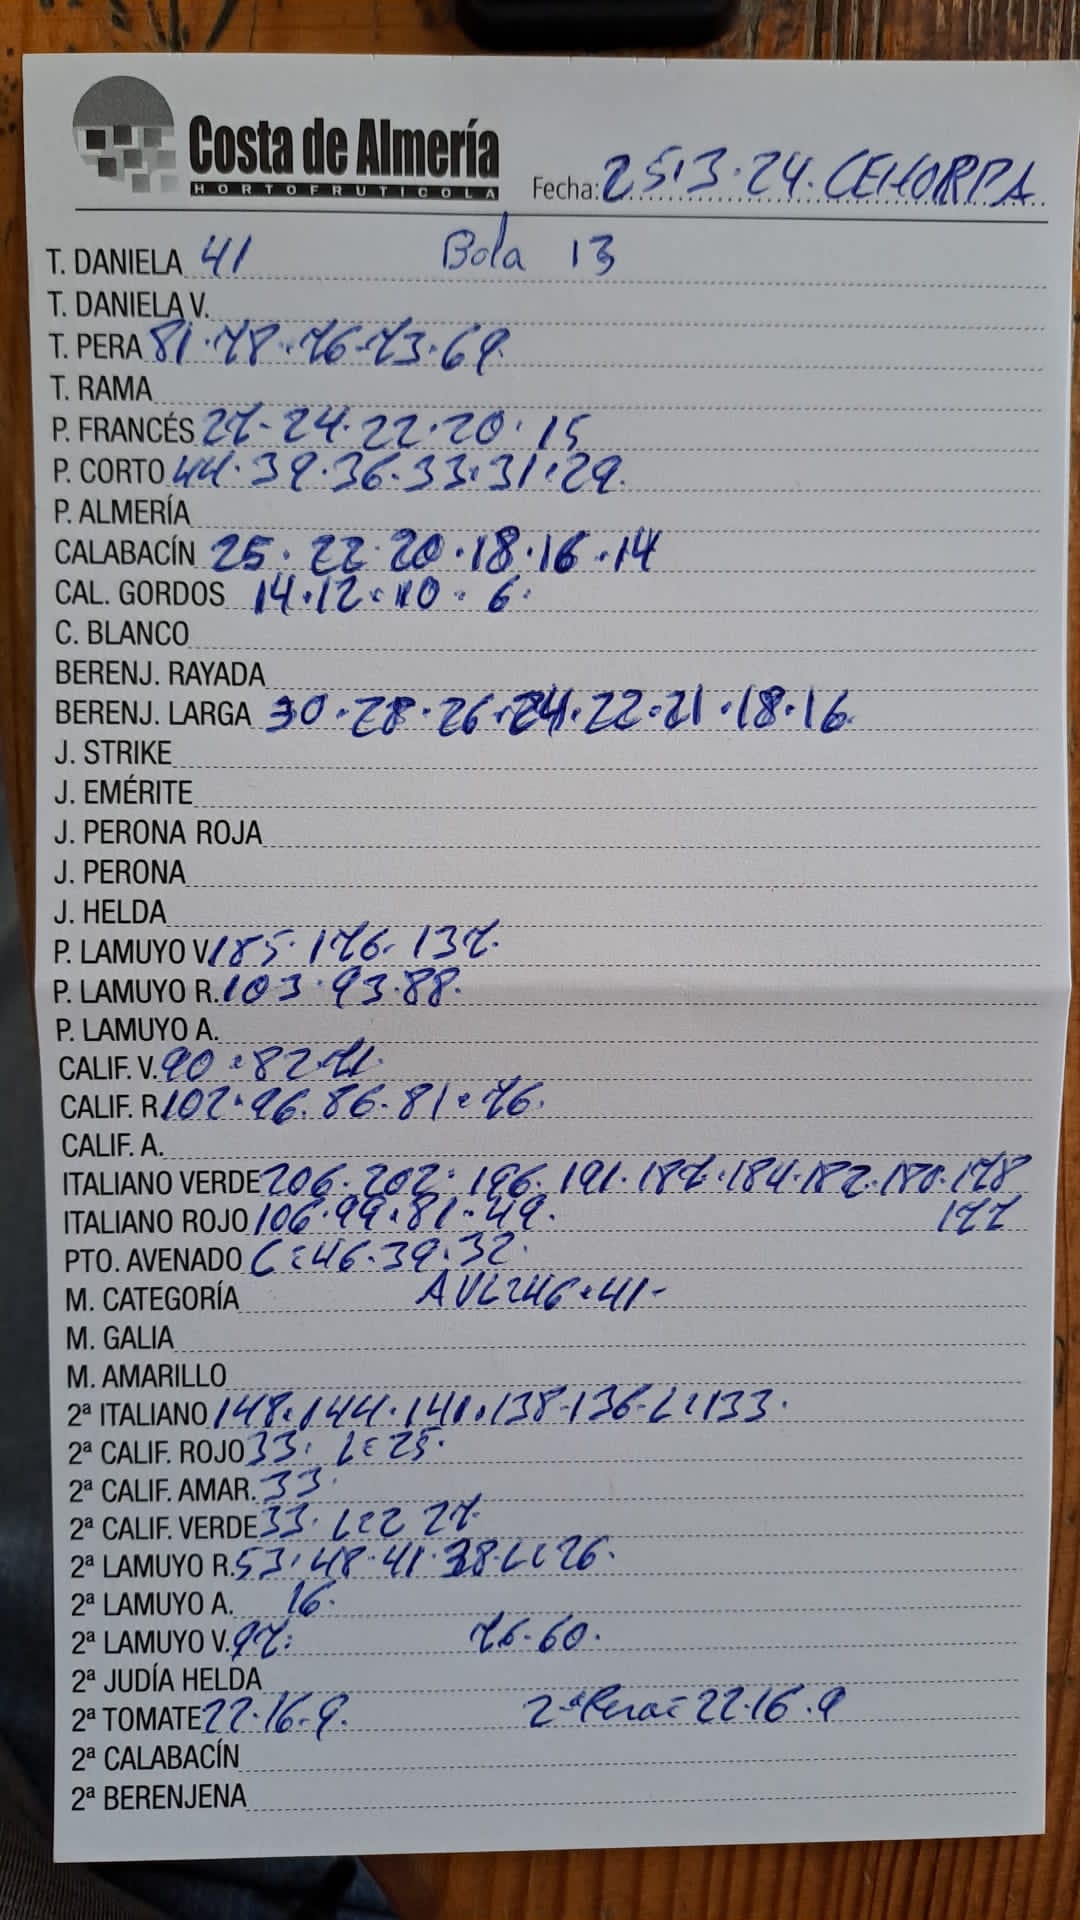 Costa de Almería
HORTOFRUTICOLA
Fecha: 25.3.24. CEHORPA
T. DANIELA 41 Bola 13
T. DANIELA V.
T. PERA 81.78.76-73.69.
T. RAMA
P. FRANCÉS 27-24.22.20.15
P. CORTO 44.39.36.33.31.29.
P. ALMERÍA
CALABACÍN 25.22.20.18.16.14
CAL. GORDOS 14.12.10.6.
C. BLANCO
BERENJ. RAYADA
BERENJ. LARGA 30.28.26.24.22.21.18.16.
J. STRIKE
J. EMÉRITE
J. PERONA ROJA
J. PERONA
J. HELDA
P. LAMUYO V. 185.176.137.
P. LAMUYO R. 103.93.88.
P. LAMUYO A.
CALIF. V. 90.82.71.
CALIF. R. 102.96.86.81.76.
CALIF. A.
ITALIANO VERDE 206.202.196.191.187.184.182.180.178
ITALIANO ROJO 106.99.81.49. 177
PTO. AVENADO C=46.39.32.
M. CATEGORÍA AVL=46.41-
M. GALIA
M. AMARILLO
2ª ITALIANO 148.144.141.138-136-L=133.
2ª CALIF. ROJO 33. L=25.
2ª CALIF. AMAR. 33.
2ª CALIF. VERDE 33. 27.
2ª LAMUYO R. 53.48.41.38-L=26.
2ª LAMUYO A. 16.
2ª LAMUYO V. 97. 76-60.
2ª JUDÍA HELDA
2ª TOMATE 22.16.9. 2ª Pera= 22.16.9
2ª CALABACÍN
2ª BERENJENA